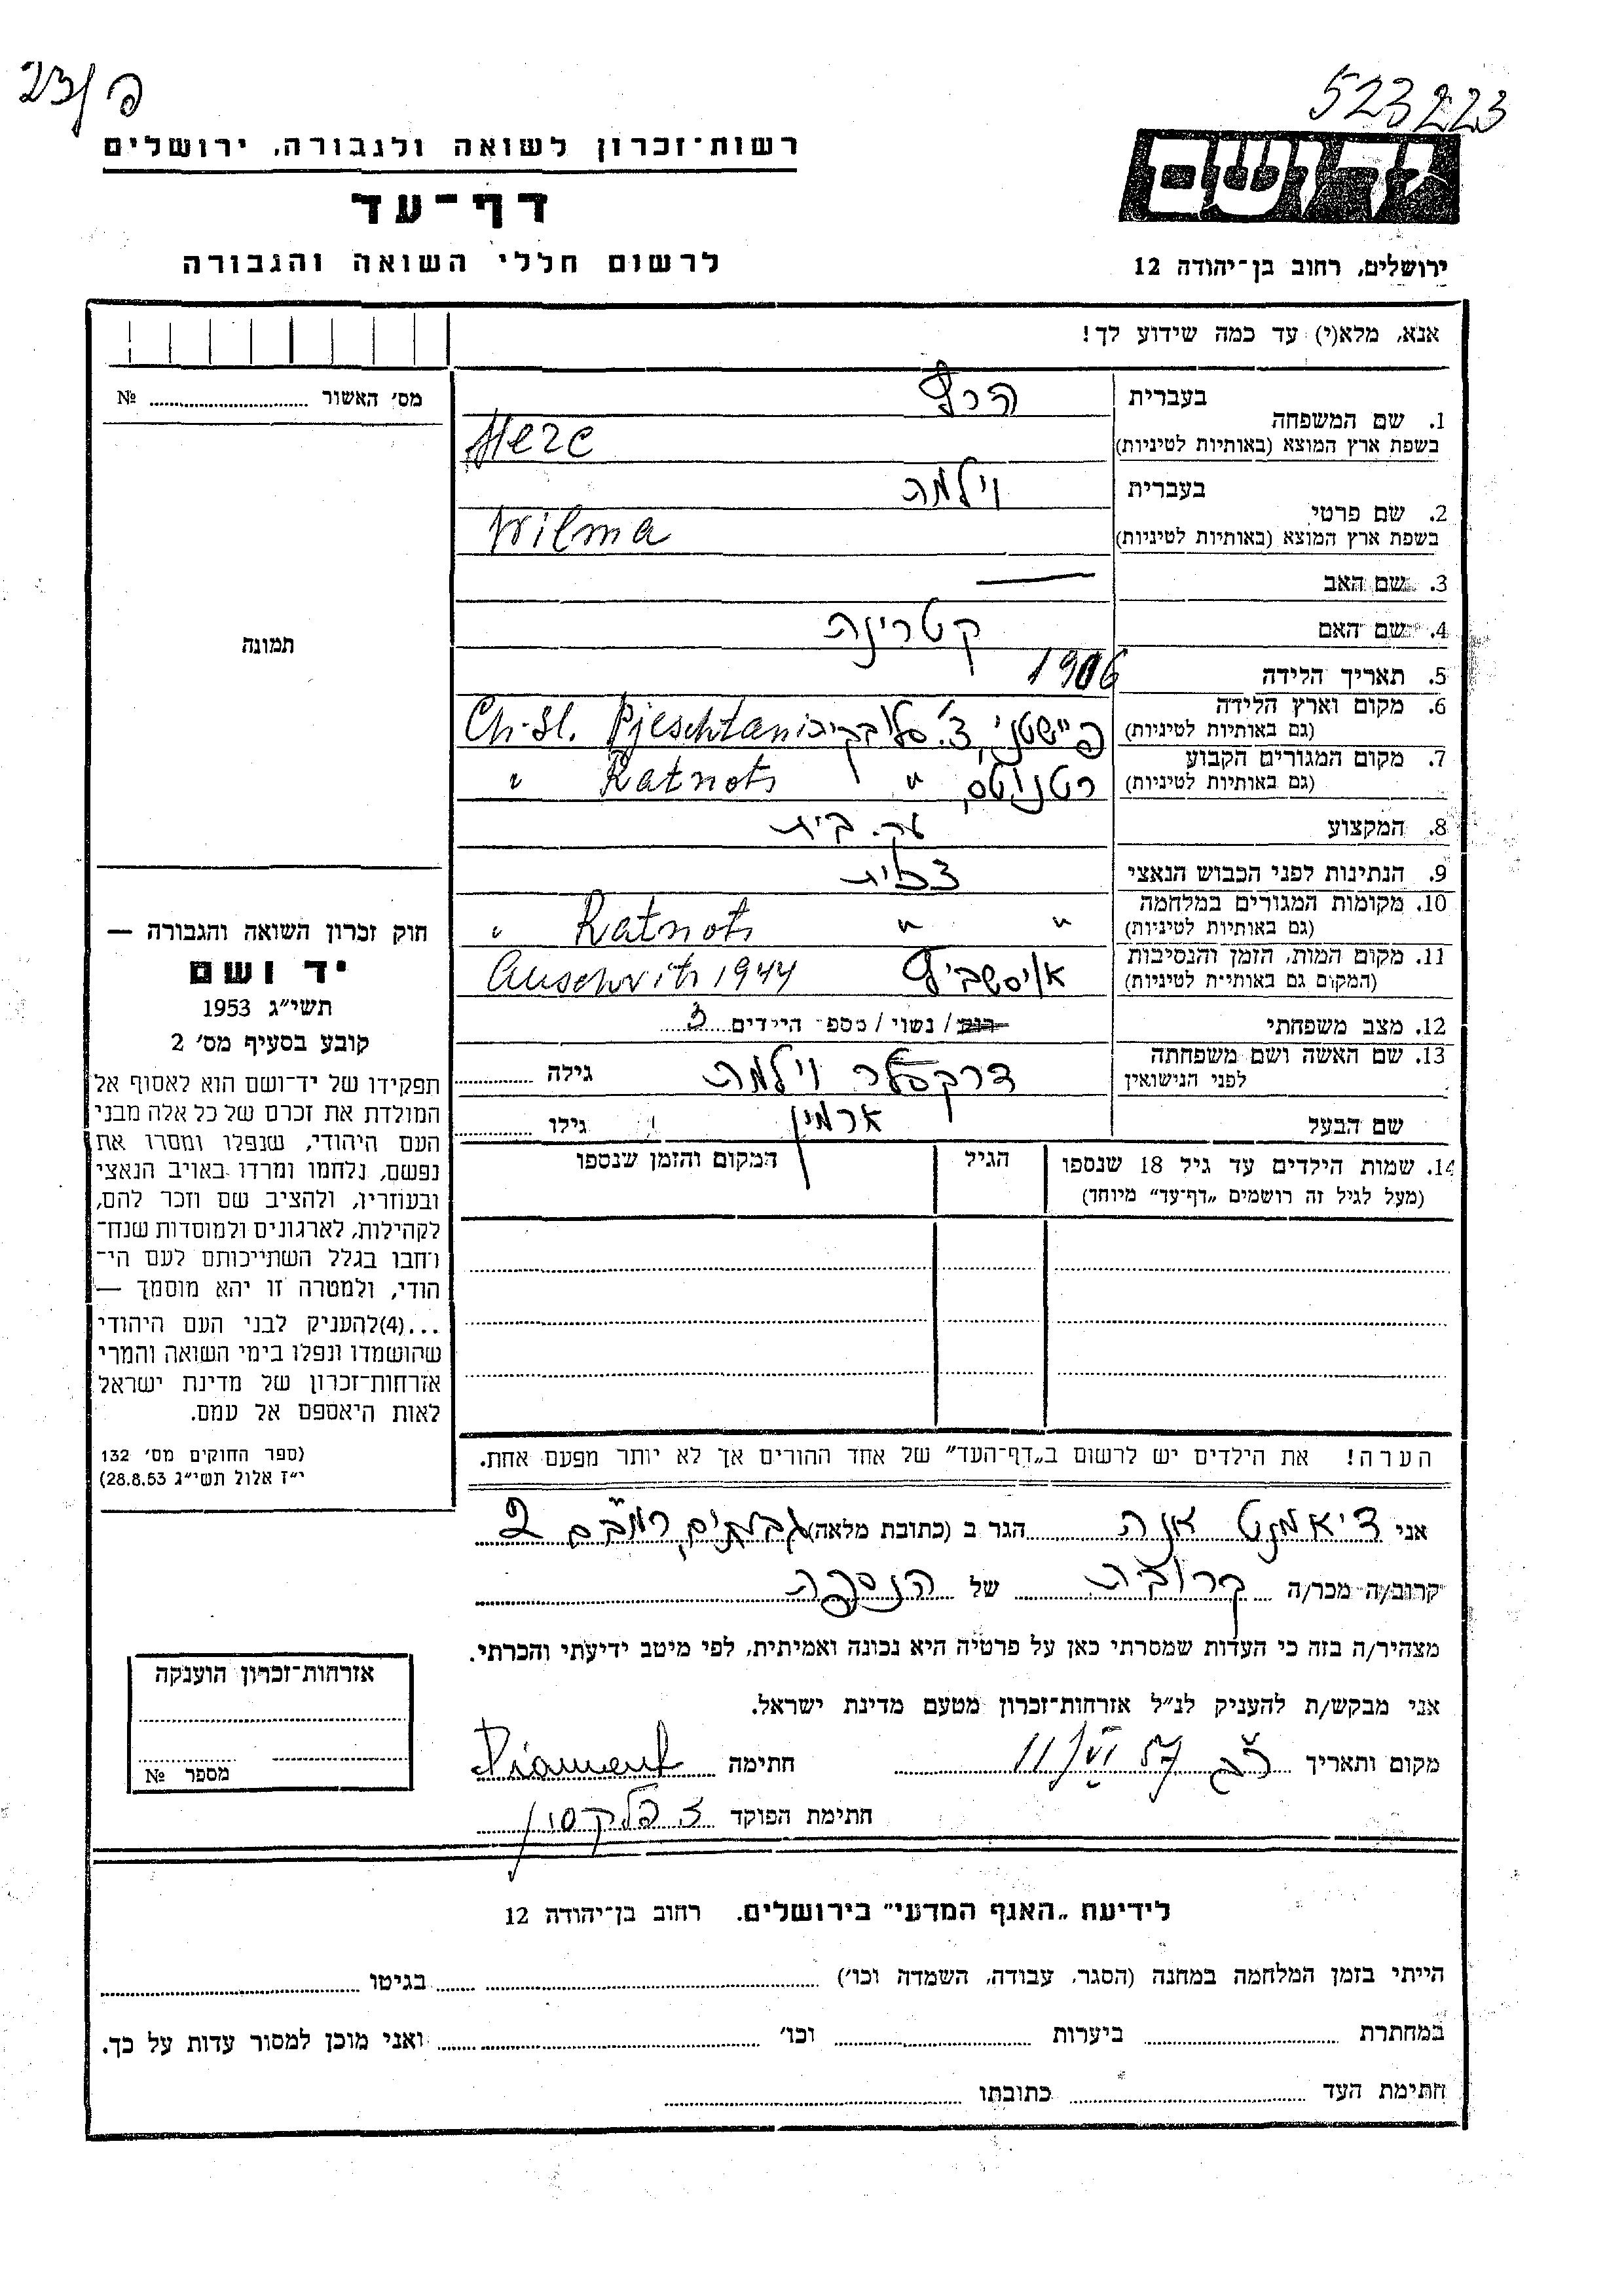 523223
רשות־זכרון לשואה ולגבורה, ירושלים
דף־עד
לרשום חללי השואה והגבורה
יד ושם
ירושלים, רחוב בן־יהודה 12
אנא, מלא(י) עד כמה שידוע לך!
מס׳ האשור № 
תמונה
1. שם המשפחה
בעברית הרץ
בשפת ארץ המוצא (באותיות לטיניות) Herc
2. שם פרטי
בעברית וילמה
בשפת ארץ המוצא (באותיות לטיניות) Wilma
3. שם האב —
4. שם האם קטרינה
5. תאריך הלידה 1906
6. מקום וארץ הלידה
(גם באותיות לטיניות) פיישטני, צ׳. סלובקיה Pjeschtani Ch-Sl.
7. מקום המגורים הקבוע
(גם באותיות לטיניות) רטנוטס, " Ratnots "
8. המקצוע עק. בית
9. הנתינות לפני הכבוש הנאצי צכית
10. מקומות המגורים במלחמה
(גם באותיות לטיניות) " " Ratnots "
11. מקום המות, הזמן והנסיבות
(המקום גם באותיות לטיניות) אוישביץ Auschvits 1944
12. מצב משפחתי רווק / נשוי / מספר הילדים 3
13. שם האשה ושם משפחתה
לפני הנישואין דרקסלר וילמה גילה
שם הבעל ארמין גילו
14. שמות הילדים עד גיל 18 שנספו
(מעל לגיל זה רושמים „דף־עד” מיוחד)
הגיל
המקום והזמן שנספו
הערה! את הילדים יש לרשום ב„דף־העד” של אחד ההורים אך לא יותר מפעם אחת.
חוק זכרון השואה והגבורה —
יד ושם
תשי״ג 1953
קובע בסעיף מס׳ 2
תפקידו של יד־ושם הוא לאסוף אל
המולדת את זכרם של כל אלה מבני
העם היהודי, שנפלו ומסרו את
נפשם, נלחמו ומרדו באויב הנאצי
ובעוזריו, ולהציב שם וזכר להם,
לקהילות, לארגונים ולמוסדות שנח־
רחבו בגלל השתייכותם לעם הי־
הודי, ולמטרה זו יהא מוסמך —
...(4) להעניק לבני העם היהודי
שהושמדו ונפלו בימי השואה והמרי
אזרחות־זכרון של מדינת ישראל
לאות היאספם אל עמם.
(ספר החוקים מס׳ 132
י״ז אלול תשי״ג 28.8.53)
אני דיאמנט אנה הגר ב (כתובת מלאה) גבעתיים, רמב״ם 2
קרוב/ה מכר/ה קרובה של הנספה
מצהיר/ה בזה כי העדות שמסרתי כאן על פרטיה היא נכונה ואמיתית, לפי מיטב ידיעתי והכרתי.
אני מבקש/ת להעניק לנ״ל אזרחות־זכרון מטעם מדינת ישראל.
מקום ותאריך 11/VI 57 חתימה Diament
חתימת הפוקד
אזרחות־זכרון הוענקה
מספר №
לידיעת „האגף המדעי” בירושלים. רחוב בן־יהודה 12
הייתי בזמן המלחמה במחנה (הסגר, עבודה, השמדה וכו׳) בגיטו
במחתרת ביערות וכו׳ ואני מוכן למסור עדות על כך.
חתימת העד כתובתו